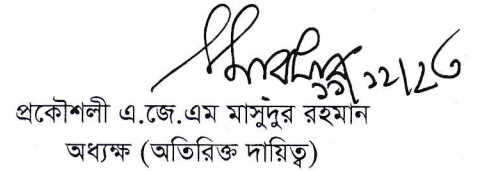 ১১/১২/২৩
প্রকৌশলী এ.জে.এম মাসুদুর রহমান
অধ্যক্ষ (অতিরিক্ত দায়িত্ব)